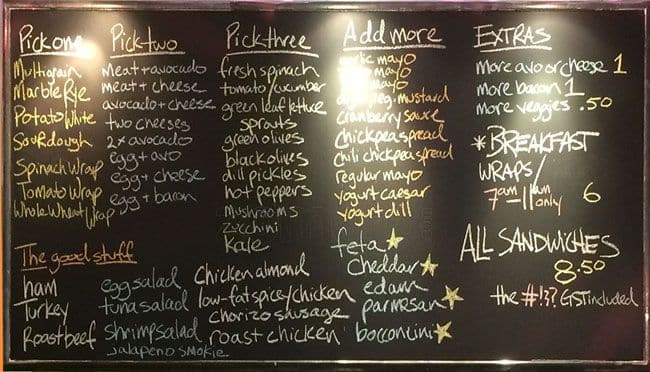 Pick one
Multigrain
Marble Rye
Potato White
Sourdough
Spinach Wrap
Tomato Wrap
Whole Wheat Wrap
Pick two
meat + avocado
meat + cheese
avocado + cheese
two cheeses
2x avocado
egg + avo
egg + cheese
egg + bacon
Pick three
fresh spinach
tomato/cucumber
green leaf lettuce
sprouts
green olives
black olives
dill pickles
hot peppers
Mushrooms
zucchini
Kale
Add more
mayo
mayo
mayo
mustard
cranberry sauce
chickpea spread
chili chickpea spread
regular mayo
yogurt caesar
yogurt dill
EXTRAS
more avo or cheese 1
more bacon 1
more veggies .50
*BREAKFAST
WRAPS/
7am-11am only 6
ALL SANDWICHES
8.50
the #!?? GST included
The good stuff
ham
Turkey
Roast beef
egg salad
tuna salad
shrimp salad
Jalapeno smokie
Chicken almond
low-fat spicy/chicken
chorizo sausage
roast chicken
feta
cheddar
edam
parmesan
bocconcini